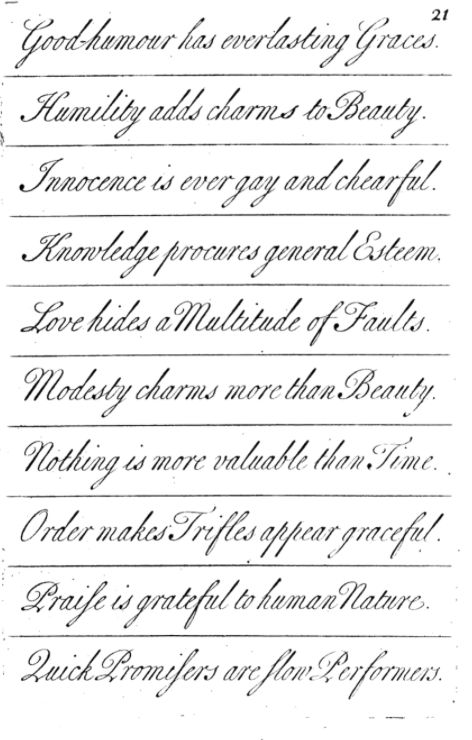 21
Good-humour has everlasting Graces.
Humility adds charms to Beauty.
Innocence is ever gay and chearful.
Knowledge procures general Esteem.
Love hides a Multitude of Faults.
Modesty charms more than Beauty.
Nothing is more valuable than Time.
Order makes Trifles appear graceful.
Praiſe is grateful to human Nature.
Quick Promiſers are ſlow Performers.